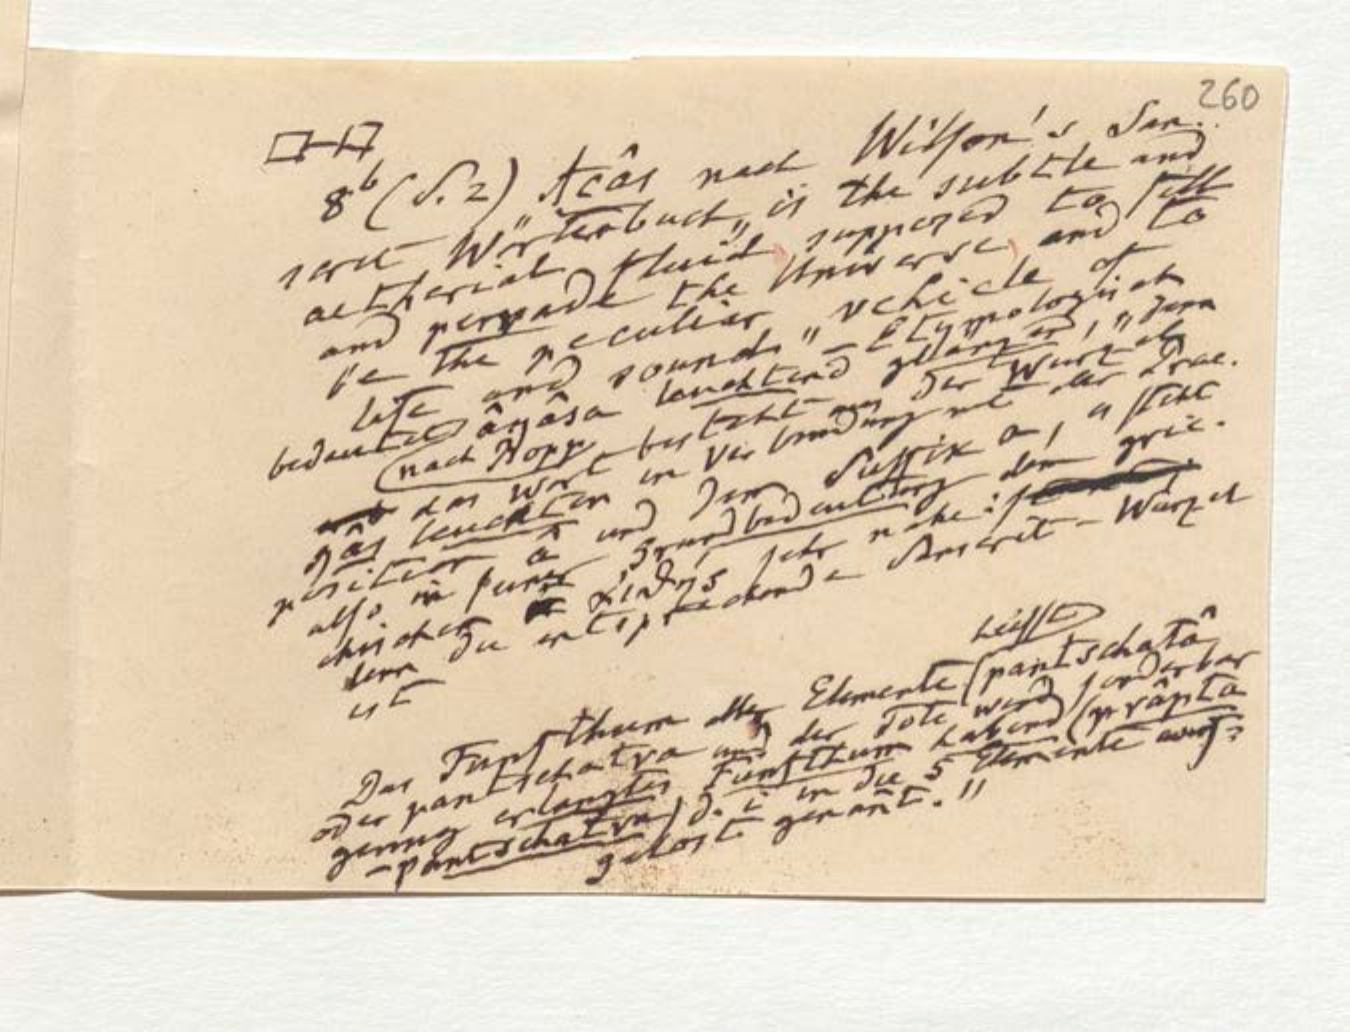 260
8b (S. 2) Acâs nach Wilson's San-
scrit Wörterbuch „is the subtle and
aetherial fluid supposed to fill
and pervade the Universe and to
be the peculiar vehicle of
life and sound." Etymologisch
bedeutet âgâsa leuchtend glänzend, „denn
(nach Bopp das Wort besteht aus der Wurzel
gâs leuchten in Verbindung mit der Prae-
position â und dem Suffix a, es steht
also in seiner Grundbedeutung dem grie-
chischen sehr nahe:
denn die entsprechende Sanscrit-Wurzel
ist
heisst
Das Fünfthum aller Elemente (pantschatâ
oder pantschatva und der Tote wird sonderbar
genug erlangtes Fünfthum habend (prâpta
-pantschatva) d. i in die 5 Elemente auf=
gelöst genañt."